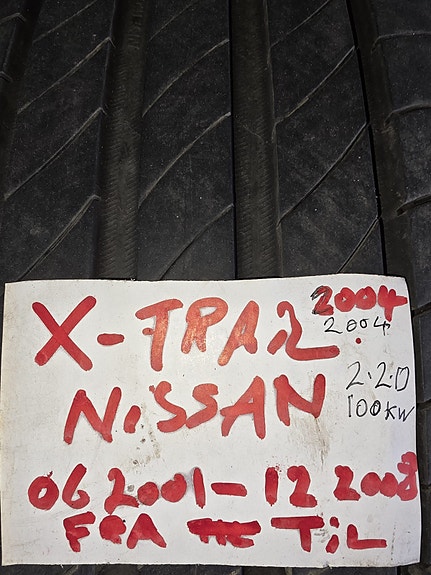 X-TRAiL 2004
2004
NiSSAN 2.2.D
100KW
06 2001-12 2008
FRA TiL